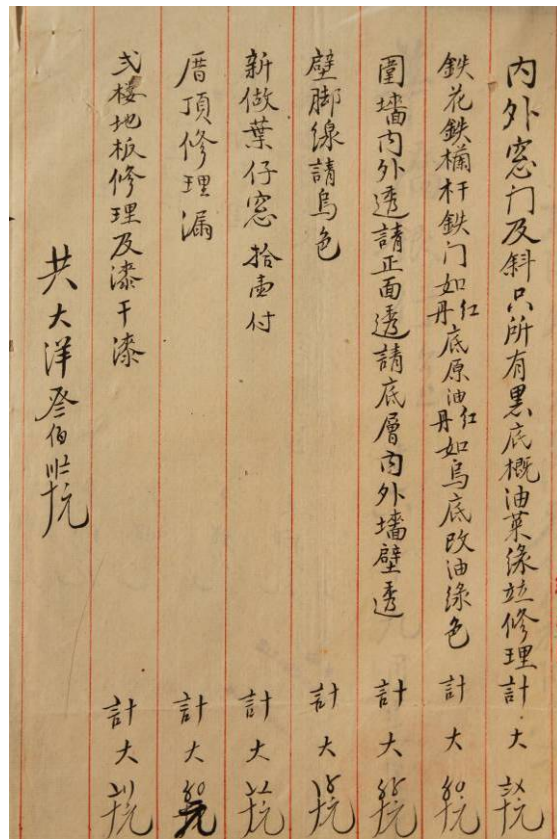 内外窓门及斜只所有黒底概油菜緑並修理計大
鉄花鉄欄杆鉄门如紅丹底原油紅丹如烏底改油綠色計大
圍墻内外透請正面透請底層内外墻壁透計大
壁脚線請烏色計大
新做葉仔窓拾壺付計大
厝頂修理漏計大
弍楼地板修理及漆干漆計大
共大洋叁佰